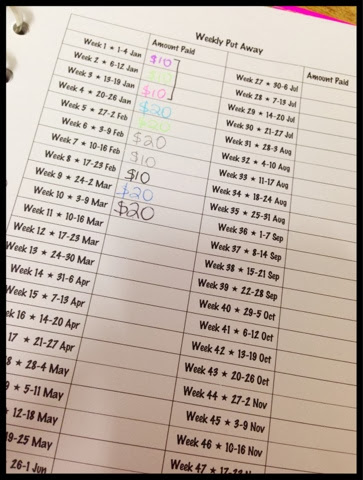 Weekly Put Away
Amount Paid
Week 1 ★ 1-4 Jan $10
Week 2 ★ 6-12 Jan $10
Week 3 ★ 13-19 Jan $10
Week 4 ★ 20-26 Jan $20
Week 5 ★ 27-2 Feb $20
Week 6 ★ 3-9 Feb $20
Week 7 ★ 10-16 Feb $10
Week 8 ★ 17-23 Feb $10
Week 9 ★ 24-2 Mar $20
Week 10 ★ 3-9 Mar $20
Week 11 ★ 10-16 Mar
Week 12 ★ 17-23 Mar
Week 13 ★ 24-30 Mar
Week 14 ★ 31-6 Apr
Week 15 ★ 7-13 Apr
ek 16 ★ 14-20 Apr
17 ★ 21-27 Apr
8 ★ 28-4 May
9 ★ 5-11 May
★ 12-18 May
19-25 May
26-1 Jun
Amount Paid
Week 27 ★ 30-6 Jul
Week 28 ★ 7-13 Jul
Week 29 ★ 14-20 Jul
Week 30 ★ 21-27 Jul
Week 31 ★ 28-3 Aug
Week 32 ★ 4-10 Aug
Week 33 ★ 11-17 Aug
Week 34 ★ 18-24 Aug
Week 35 ★ 25-31 Aug
Week 36 ★ 1-7 Sep
Week 37 ★ 8-14 Sep
Week 38 ★ 15-21 Sep
Week 39 ★ 22-28 Sep
Week 40 ★ 29-5 Oct
Week 41 ★ 6-12 Oct
Week 42 ★ 13-19 Oct
Week 43 ★ 20-26 Oct
Week 44 ★ 27-2 Nov
Week 45 ★ 3-9 Nov
Week 46 ★ 10-16 Nov
Week 47 ★